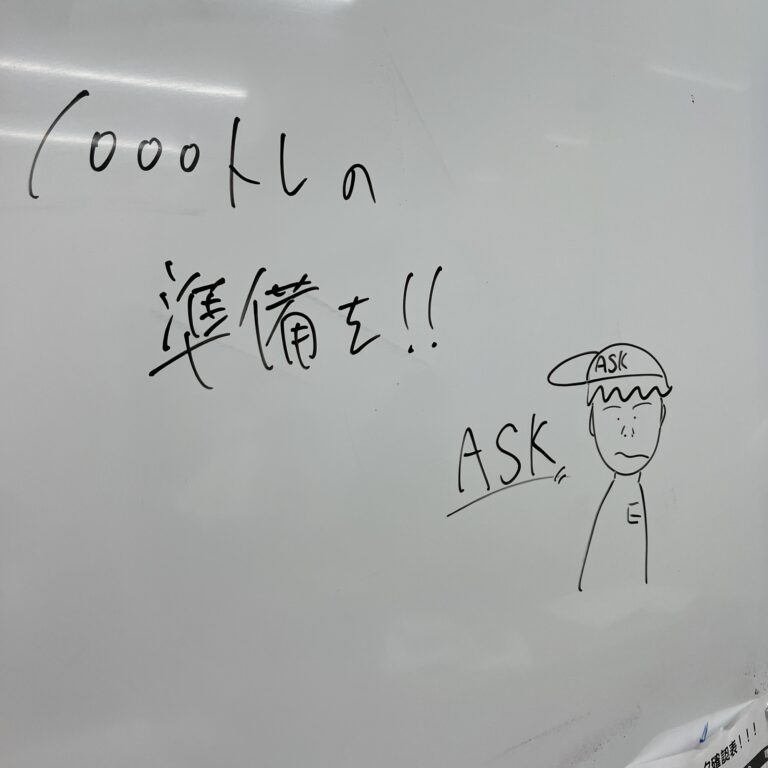 1000トレの
準備を!!
ASK
ASK
E
確認表!!!